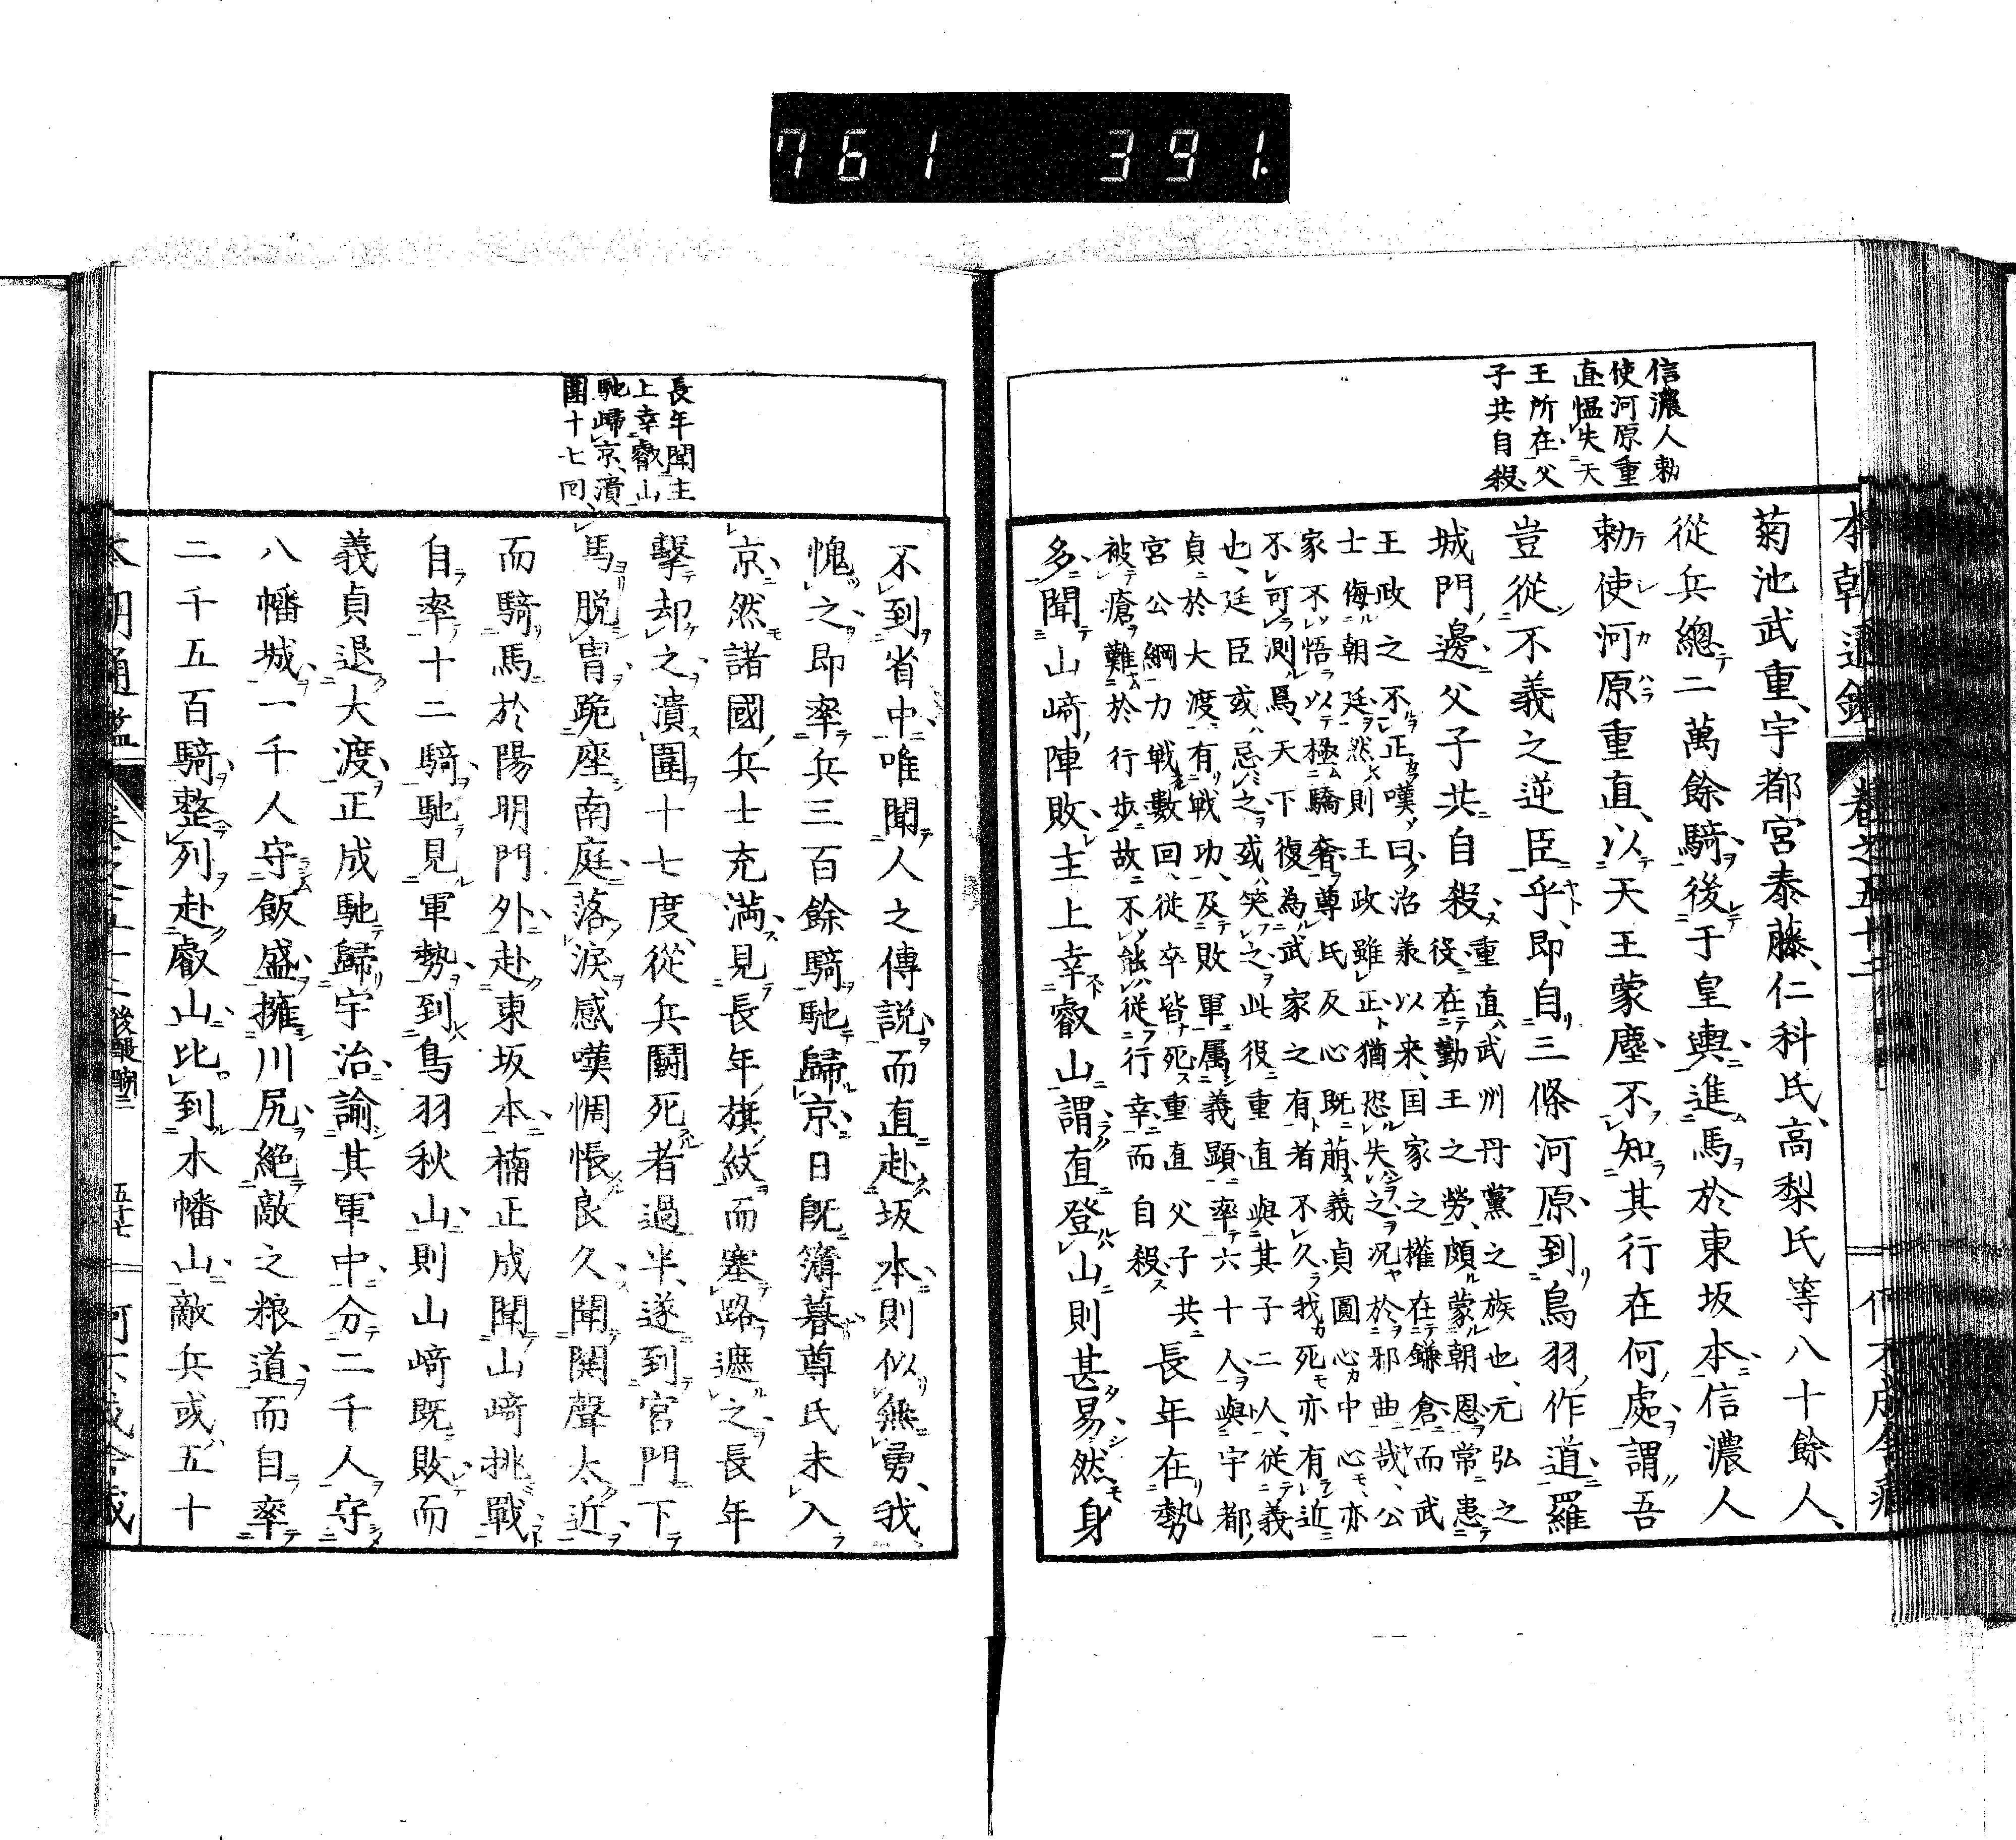 761 391.
信濃人勅
使河原重
直慍失天
王所在父
子共自殺
菊池武重宇都宮泰藤仁科氏高梨氏等八十餘人
從兵總二萬餘騎後于皇輿進馬於東坂本信濃人
勅使河原重直以天王蒙塵不知其行在何處謂吾
豈從不義之逆臣乎即自三條河原到鳥羽作道羅
城門邊父子共自殺
重直武州丹黨之族也元弘之
役在勤王之勞頗蒙朝恩常患
王政之不正嘆曰治義以来国家之權在鎌倉而武
士侮朝廷然則王政雖正猶恐失之况於邪曲哉公
家不悟以極驕奢尊氏反心既萠義貞圓心中心亦
不可測焉天下復為武家之有者不久我死亦有近
也廷臣或忌之或笑之此役重直與其子二人従義
貞於大渡有戦功及敗軍属義顕率六十人與宇都
宮公綱力戦數回従卒皆死重直父子共
被瘡難於行歩故不能従行幸而自殺
長年在勢
多聞山﨑陣敗主上幸叡山謂直登山則甚易然身
長年聞主
上幸叡山
馳歸京潰
圍十七回
不到省中唯聞人之傳説而直赴坂本則似無勇我
愧之即率兵三百餘騎馳歸京日既簿暮尊氏未入
京然諸國兵士充滿見長年旗紋而塞路遮之長年
擊却之潰圍十七度從兵鬪死者過半遂到官門下
馬脱冑跪座南庭落淚感嘆惆悵良久聞鬨聲太近
而騎馬於陽明門外赴東坂本楠正成聞山﨑挑戰
自率十二騎馳見軍勢到鳥羽秋山則山﨑既敗而
義貞退大渡正成馳歸宇治諭其軍中分二千人守
八幡城一千人守飯盛擁川尻絶敵之粮道而自率
二千五百騎整列赴叡山比到木幡山敵兵或五十